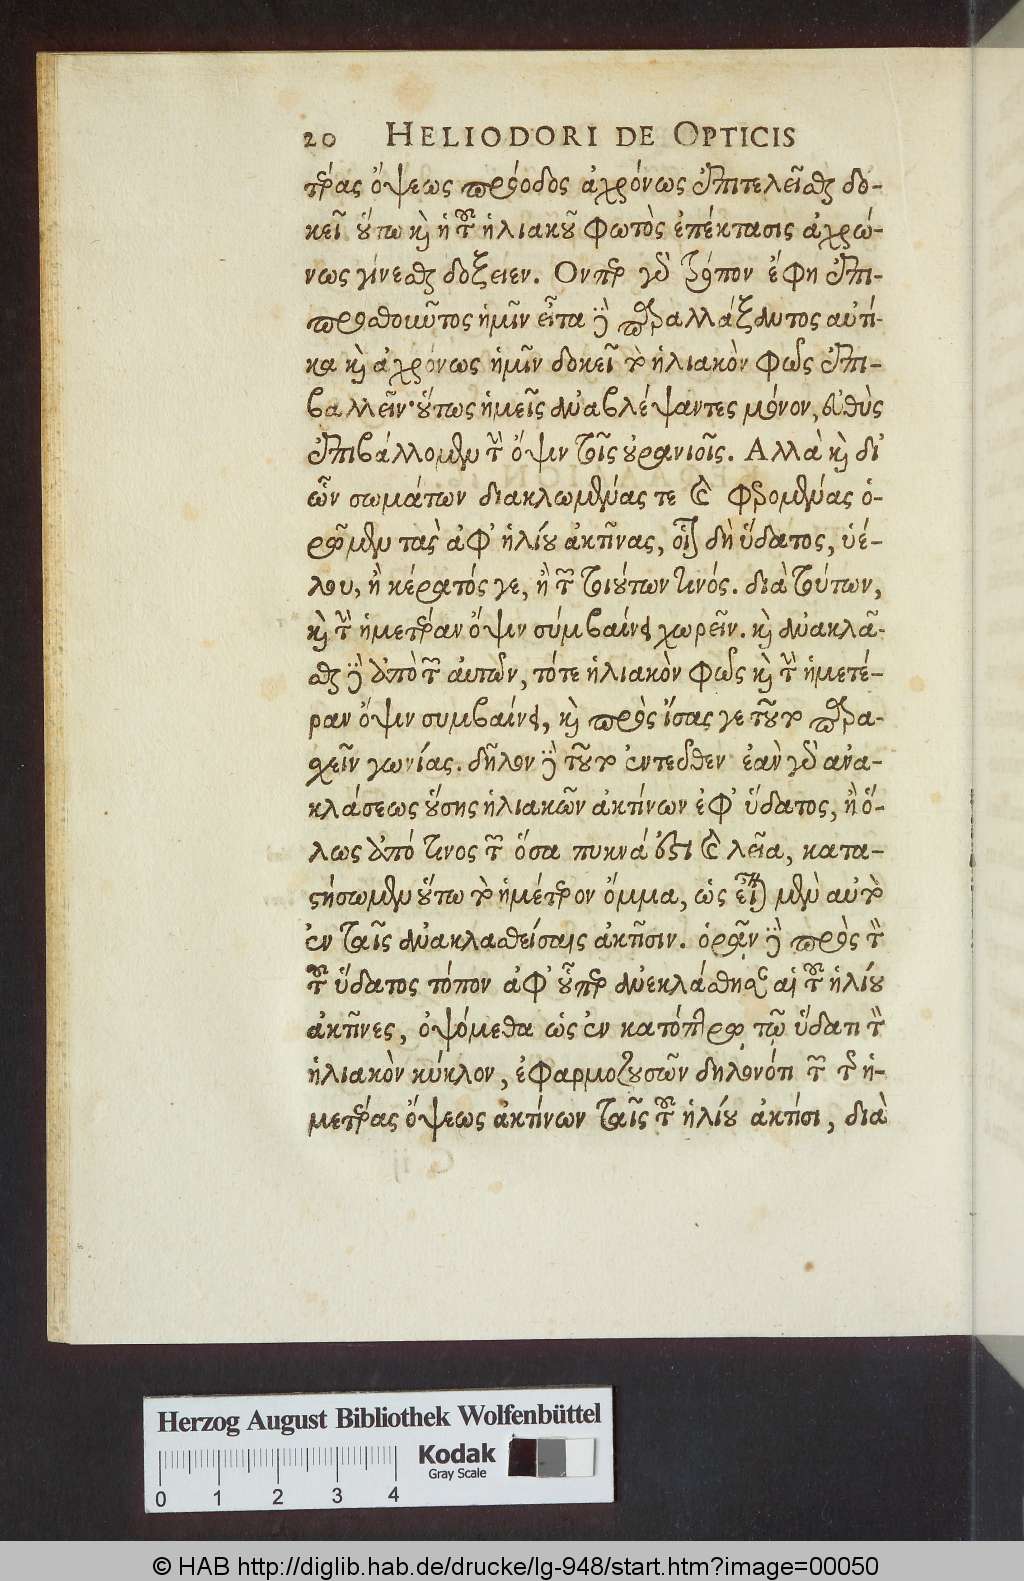 20 HELIODORI DE OPTICIS
τέρας ὄψεως πρόοδος ἀχρόνως ἐπιτελεῖσθαι δο-
κεῖ οὕτω καὶ ἡ τοῦ ἡλιακοῦ φωτὸς ἐπέκτασις ἀχρώ-
νως γίνεσθαι δόξειεν. Ονπερ γὰρ τρόπον ἔφη ἐπι-
προσθοιῦτος ἡμῖν εἶτα καὶ παραλλάξαντος αὐτί-
κα καὶ ἀχρόνως ἡμῖν δοκεῖ τὸ ἡλιακὸν φῶς ἐπι-
βαλλεῖν· οὕτως ἡμεῖς ἀναβλέψαντες μόνον, εὐθὺς
ἐπιβάλλομεν τὴν ὄψιν τοῖς οὐρανιοῖς. Αλλὰ καὶ δι'
ὧν σωμάτων διακλωμένας τε καὶ φερομένας ὁ-
ρῶμεν τὰς ἀφ' ἡλίου ἀκτῖνας, οἷον δὴ ὕδατος, ὑέ-
λου, ἢ κέρατός γε, ἢ τῶν τοιούτων τινός. διὰ τούτων,
καὶ τὴν ἡμετέραν ὄψιν συμβαίνει χωρεῖν. καὶ ἀνακλᾶ-
σθαι δὲ ἀπὸ τῶν αὐτῶν, τότε ἡλιακὸν φῶς καὶ τὴν ἡμετέ-
ραν ὄψιν συμβαίνει, καὶ πρὸς ἴσας γε τοῦτο παρα-
χεῖν γωνίας. δῆλον δὲ τοῦτο ἐντεῦθεν ἐὰν γὰρ ἀνα-
κλάσεως οὔσης ἡλιακῶν ἀκτίνων ἐφ' ὕδατος, ἢ ὅ-
λως ἀπό τινος τῶν ὅσα πυκνά ἐστι καὶ λεῖα, κατα-
στήσωμεν οὕτω τὸ ἡμέτερον ὄμμα, ὡς εἶναι μὲν αὐτὸ
ἐν ταῖς ἀνακλασθείσαις ἀκτῖσιν. ὁρᾷν δὲ πρὸς τὸν
τοῦ ὕδατος τόπον ἀφ' οὗπερ ἀνεκλάσθησαν αἱ τοῦ ἡλίου
ἀκτῖνες, ὀψόμεθα ὡς ἐν κατόπτρῳ τῷ ὕδατι τὸν
ἡλιακὸν κύκλον, ἐφαρμοζουσῶν δηλονότι τῶν τῆς ἡ-
μετέρας ὄψεως ἀκτίνων ταῖς τοῦ ἡλίου ἀκτίσι, διὰ
Herzog August Bibliothek Wolfenbüttel
Kodak
Gray Scale
0 1 2 3 4
© HAB http://diglib.hab.de/drucke/lg-948/start.htm?image=00050